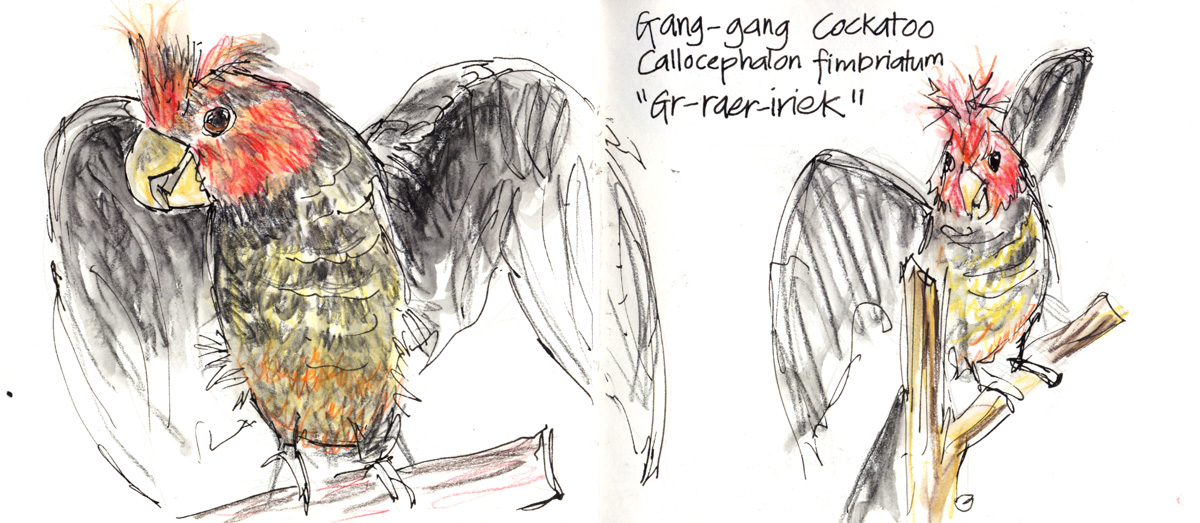 Gang-gang Cockatoo
Callocephalon fimbriatum
"Gr-raer-iriek"